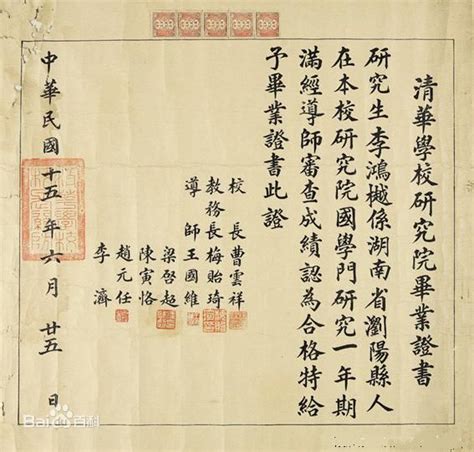 清華學校研究院畢業證書
研究生李鴻樾係湖南省瀏陽縣人
在本校研究院國學門研究一年期
滿經導師審查成績認為合格特給
予畢業證書此證
校長曹雲祥
教務長梅貽琦
導師王國維
梁啓超
陳寅恪
趙元任
李濟
中華民國十五年六月廿五日
Bai百科